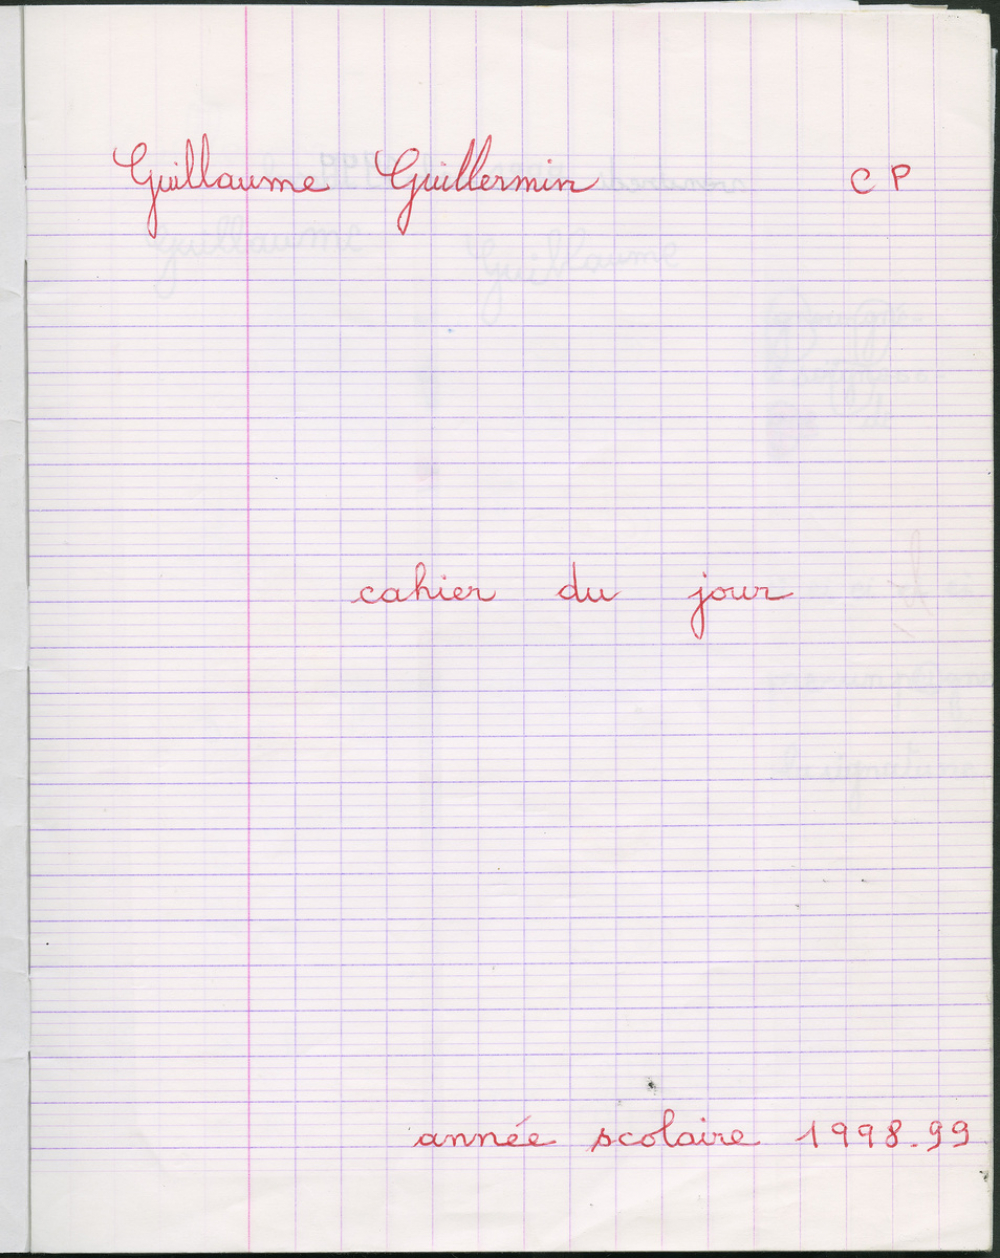 Guillaume Guillermin CP
cahier du jour
année scolaire 1998-99